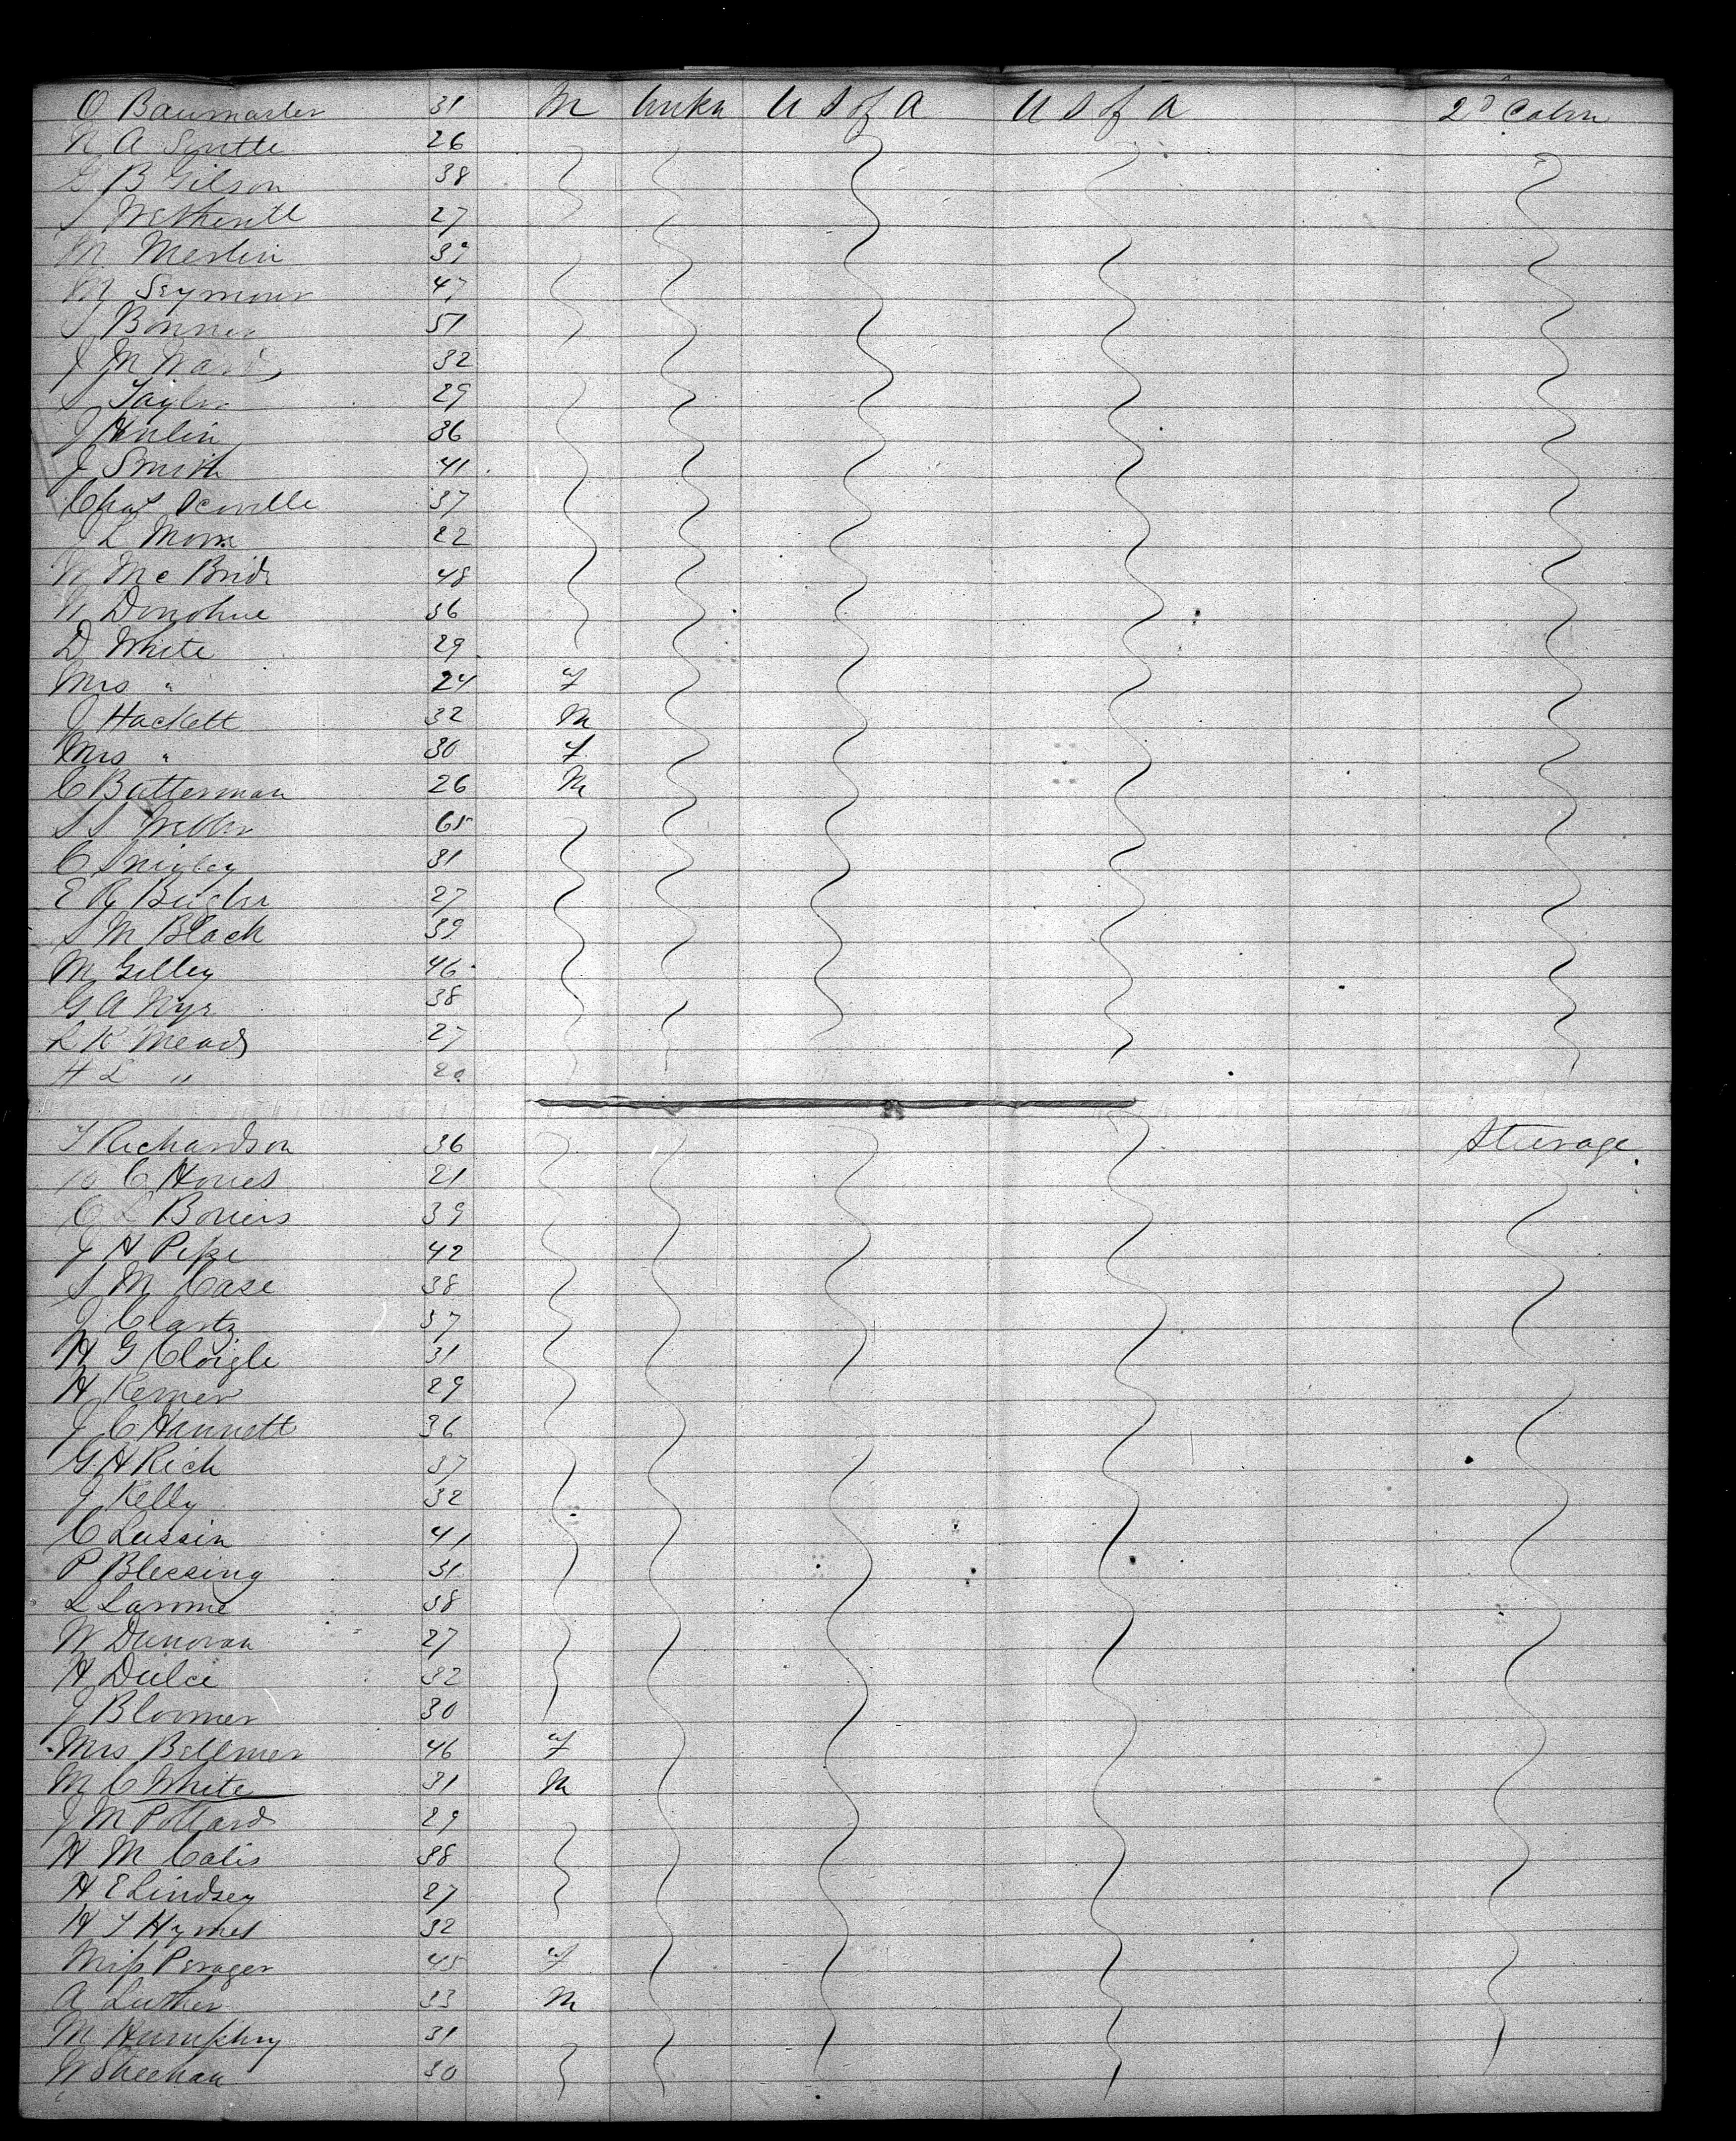 O Baumarter 31 M unkn U S of A U S of A 2d Cabin
N A 26
G B Gilson 38
S Wetherill 27
M Merlin 39
M Seymour 47
S Bonner 51
J M Ward 32
S Taylor 29
J 36
J Smith 41
Chas Scoville 37
J L 22
W McBride 48
W Donohue 36
D White 29
Mrs " 24 f
J Hackett 32 M
Mrs " 30 f
C Butterman 26 M
S S Webber 65
C 31
E R 27
S M Black 39
M Gilley 46
G A Nye 38
L K Mead 27
H L " 20
T Richardson 36 Steerage
C 21
39
J H Pike 42
S M Case 38
J Clartz 37
H G Cloigle 31
H 29
J C Hannett 36
G H Rich 37
J Kelly 32
C Lassin 41
P Blessing 31
L Larome 38
W Dunovan 27
H Dulci 32
J Bloomer 30
Mrs Bellmer 46 f
M C White 31 M
J M Pollard 29
H M Calis 38
H E Lindsey 27
H T Hymes 32
Miss Perager 45 f
A Luther 33 M
M Humphry 31
W Sheehan 30